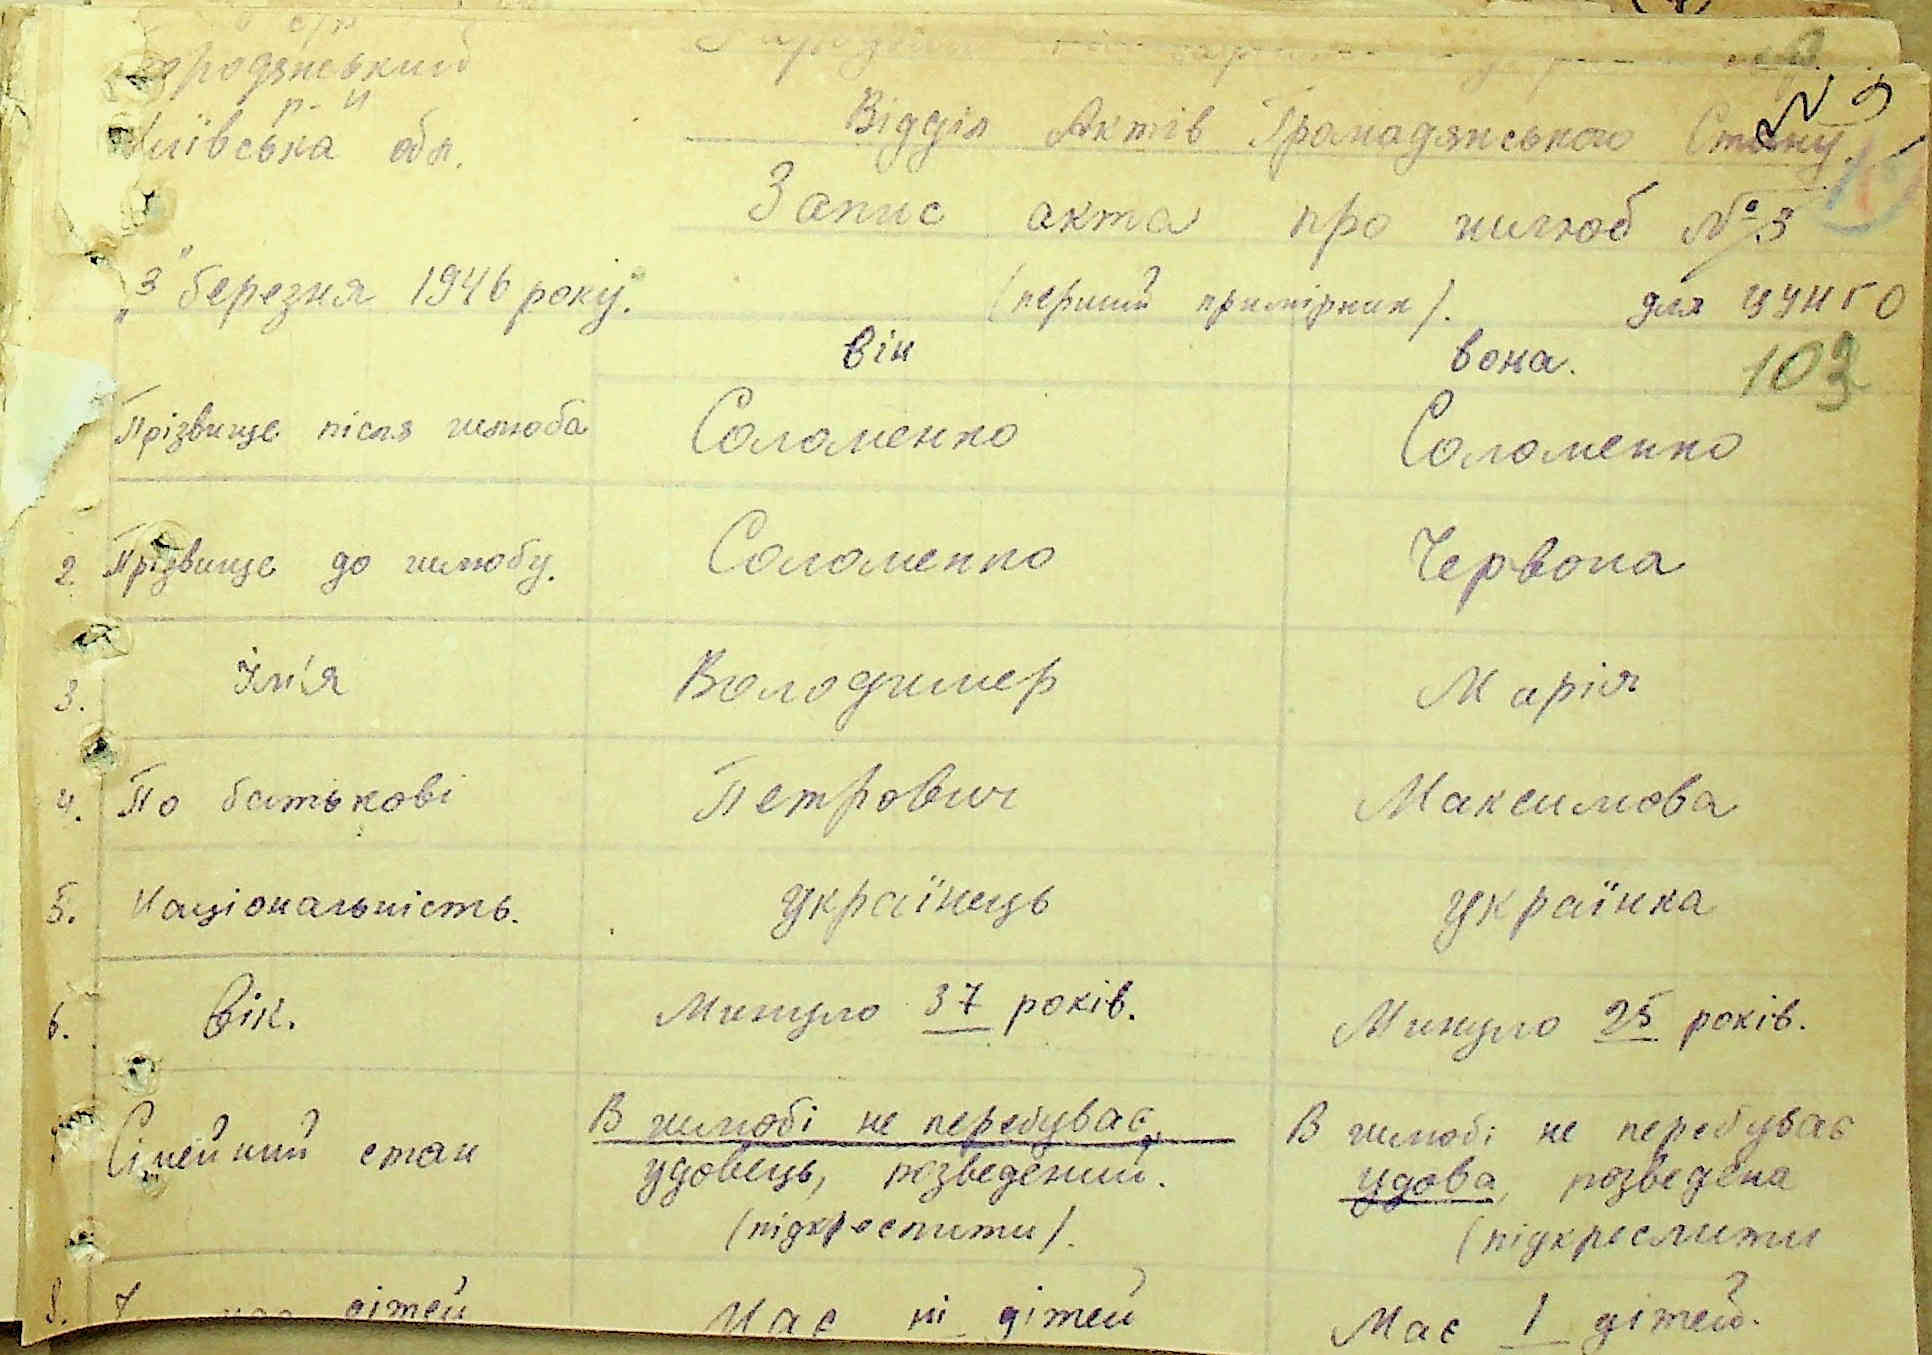 р-н
Київська обл.
Відділ Актів Громадянського Стану
Запис акта про шлюб № 3
"3" березня 1946 року. (перший примірник). для ЦУНГО
він вона. 103
Прізвище після шлюба Соломенко Соломенко
2 Прізвище до шлюбу. Соломенко Червона
3. Ім'я Володимер Марія
4. По батькові Петрович Максимова
5. Національність. українець українка
6. Вік. Минуло 37 років. Минуло 25 років.
Сімейний стан В шлюбі не перебуває, удовець, розведений. (підкреслити). В шлюбі не перебуває удова, розведена (підкреслити
8. має дітей Має ні дітей Має 1 дітей.